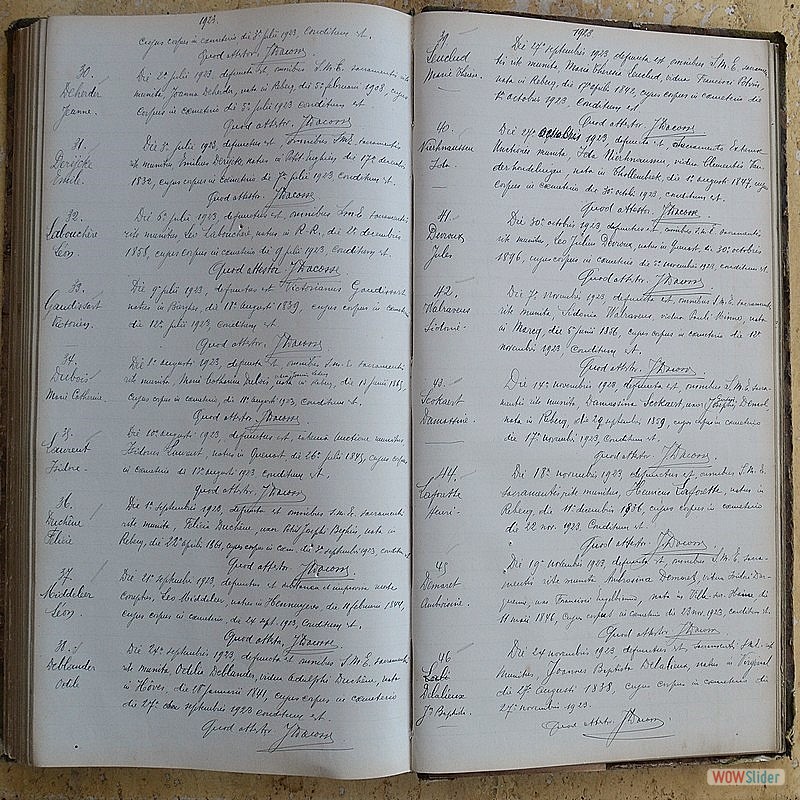 1923.
cujus corpus in cemeterio die 3ª julii 1923, conditum est.
Quod attestor. J Dacosse
30.
Deherder
Jeanne.
Die 2ª julii 1923, defuncta est, omnibus S.M.E. sacramentis rite
munita, Joanna Deherder, nata in Reberg die 5ª februarii 1908, cujus
corpus in cemeterio die 5ª julii 1923 conditum est.
Quod attestor. J Dacosse
31.
Derijcke
Emile.
Die 5ª julii 1923, defunctus est, omnibus S.M.E. sacramentis
rite munitus, Emilius Derijcke natus in die 17ª
1832, cujus corpus in cemeterio die 7ª julii 1923, conditum est.
Quod attestor. J Dacosse
32.
Labouchère
Léon.
Die 6ª julii 1923, defunctus est, omnibus S.M.E. sacramentis
rite munitus, Leo Labouchère, natus in R.R., die 2ª decembris
1858, cujus corpus in cemeterio die 9 julii 1923, conditum est.
Quod attestor. J Dacosse
33.
Gaudissart
Victorien.
Die 9ª julii 1923, defunctus est Victorianus Gaudissart
natus in Bierghes, die 18ª augusti 1839, cujus corpus in cemeterio
die 12ª julii 1923, conditum est
Quod attestor. J Dacosse
34.
Dubois
Marie Catherine.
Die 1ª augusti 1923, defuncta est, omnibus S.M.E. sacramentis
rite munita, Maria Catharina Dubois, nata in Reberg, die
cujus corpus in cemeterio, die augusti 1923, conditum est.
Quod attestor. J Dacosse
35.
Laurent
Isidore.
Die 10ª augusti 1923, defunctus est, extrema unctione munitus
Isidorus Laurent, natus in Quenast die 26ª julii 1845, cujus corpus
in cemeterio die augusti 1923 conditum est.
Quod attestor. J Dacosse
36.
Duchêne
Félicie
Die 1ª septembris 1923, defuncta est, omnibus S.M.E. sacramentis
rite munita, Felicia Duchêne, uxor Petri Josephi Beghin, nata in
Reberg, die 22ª aprilis 1861, cujus corpus in cem. die 3ª septembris 1923, conditum est
Quod attestor. J Dacosse
37.
Middeleer
Léon.
Die 21ª septembris 1923, defunctus est subitanea et improvisa morte
Leo Middeleer, natus in Hennuyeres die 11 februarii
cujus corpus in cemeterio, die 24 sept. 1923, conditum est.
Quod attestor. J Dacosse
38.
Deblander
Odile
Die 24ª septembris 1923, defuncta est omnibus S.M.E. sacramentis
rite munita, Odilia Deblander, vidua Adolphi Duchêne, nata
in Hoves, die 28 januarii 1841, cujus corpus in cemeterio
die 27ª septembris 1923 conditum est.
Quod attestor. J Dacosse
1923
39.
Marie Thérèse.
Die 27ª septembris 1923, defuncta est, omnibus S.M.E. sacramen-
tis rite munita, Maria Theresia vidua Francisci
nata in Reberg, die aprilis 1842, cujus corpus in cemeterio die
1ª octobris 1923, conditum est
Quod attestor. J Dacosse
40.
Ida.
Die 27ª octobris 1923, defuncta est, sacramento Extremae
Unctionis munita, Ida vidua Clementis Van-
derhoudelingen, nata in Thollembeek, die 1ª augusti 1847, cujus
corpus in cemeterio die 30ª octob. 1923, conditum est.
Quod attestor. J Dacosse
41.
Devroux
Jules
Die 30ª octobris 1923, defunctus est omnibus S.M.E. sacramentis
rite munitus, Julius Devroux, natus in Quenast, die 30ª octobris
1896, cujus corpus in cemeterio die novembris 1923, conditum est
Quod attestor. J Dacosse
42.
Walravens
Sidonie.
Die 7ª novembris 1923, defuncta est, omnibus S.M.E. sacramentis
rite munita, Sidonia Walravens, vidua Pauli nata
in Marcq, die 5ª junii 1856, cujus corpus in cemeterio die
novembris 1923, conditum est.
Quod attestor. J Dacosse
43.
Scokaert
Damasine.
Die 14ª novembris 1923, defuncta est, omnibus S.M.E. sacra-
mentis rite munita, Damasina Scokaert, uxor Josephi
nata in Reberg, die 29 septembris 1859, cujus corpus in cemeterio
die 17ª novembris 1923, conditum est.
Quod attestor. J Dacosse
44.
Lafouette
Henri.
Die 18ª novembris 1923, defunctus est, omnibus S.M.E.
sacramentis rite munitus, Henricus Lafouette, natus in
Reberg, die 11ª decembris 1856, cujus corpus in cemeterio
die 22 nov. 1923. conditum est.
Quod attestor. J Dacosse
45
Demaret
Ambroisine.
Die 19ª novembris 1923, defuncta est, omnibus S.M.E. sacra-
mentis rite munita Ambrosina Demaret, vidua Isidori
uxor Francisci nata in die
11 maii 1846, cujus corpus in cemeterio die 23 nov. 1923, conditum est.
Quod attestor. J Dacosse
46
Delalieux
Jn Baptiste.
Die 24 novembris 1923, defunctus est, sacramentis S.M.E. rite
munitus, Joannes Baptista Delalieux, natus in
die 27ª augusti 1838, cujus corpus in cemeterio die
27ª novembris 1923.
Quod attestor. J Dacosse
WOWSlider